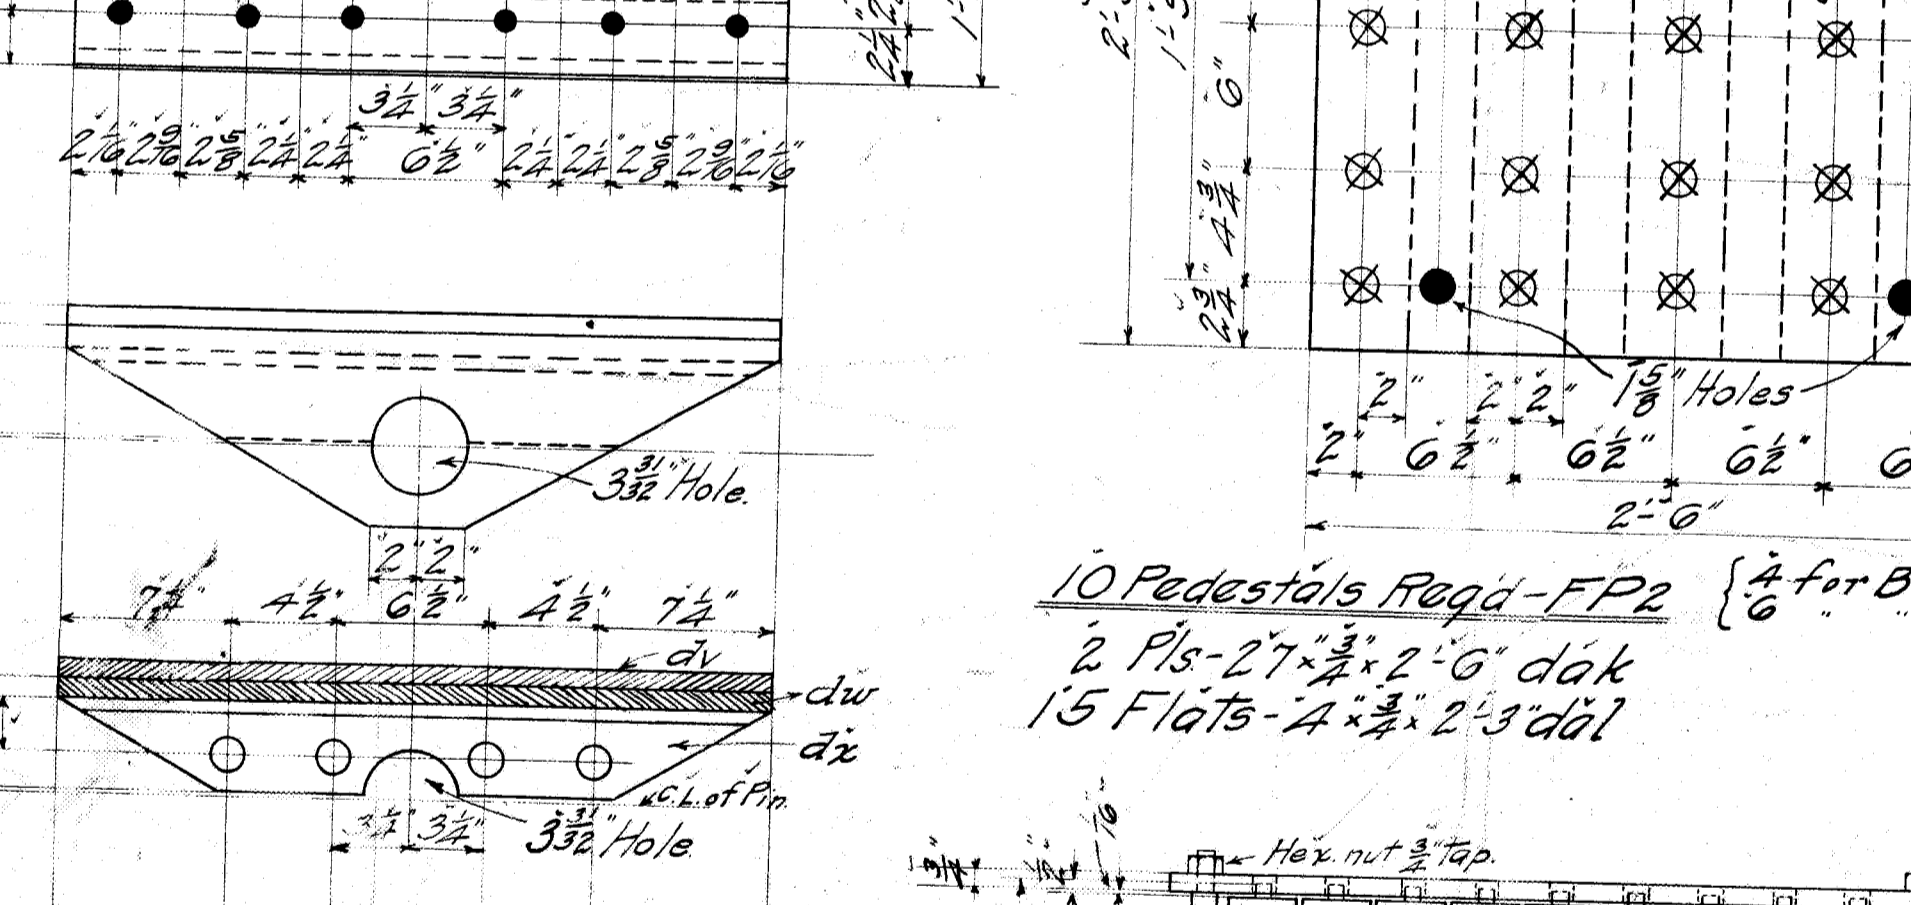 3 1/4" 3 1/4"
2 1/16" 2 9/16" 2 5/8" 2 1/4" 2 1/4" 6 1/2" 2 1/4" 2 1/4" 2 5/8" 2 9/16" 2 1/16"
3 31/32" Hole.
2" 2"
7 1/4" 4 1/2" 6 1/2" 4 1/2" 7 1/4"
dv
dw
dx
C.L. of Pin.
3 1/4" 3 1/4"
3 31/32" Hole
6"
4 3/4"
2 3/4"
1 5/8" Holes
2" 2" 2"
2" 6 1/2" 6 1/2" 6 1/2" 6
2'-6"
10 Pedestals Reqd-FP2 { 4 for B
6 " "
2 Pls-27"x3/4"x2'-6" dak
15 Flats-4"x3/4"x2'-3" dal
Hex. nut 3/4" tap.